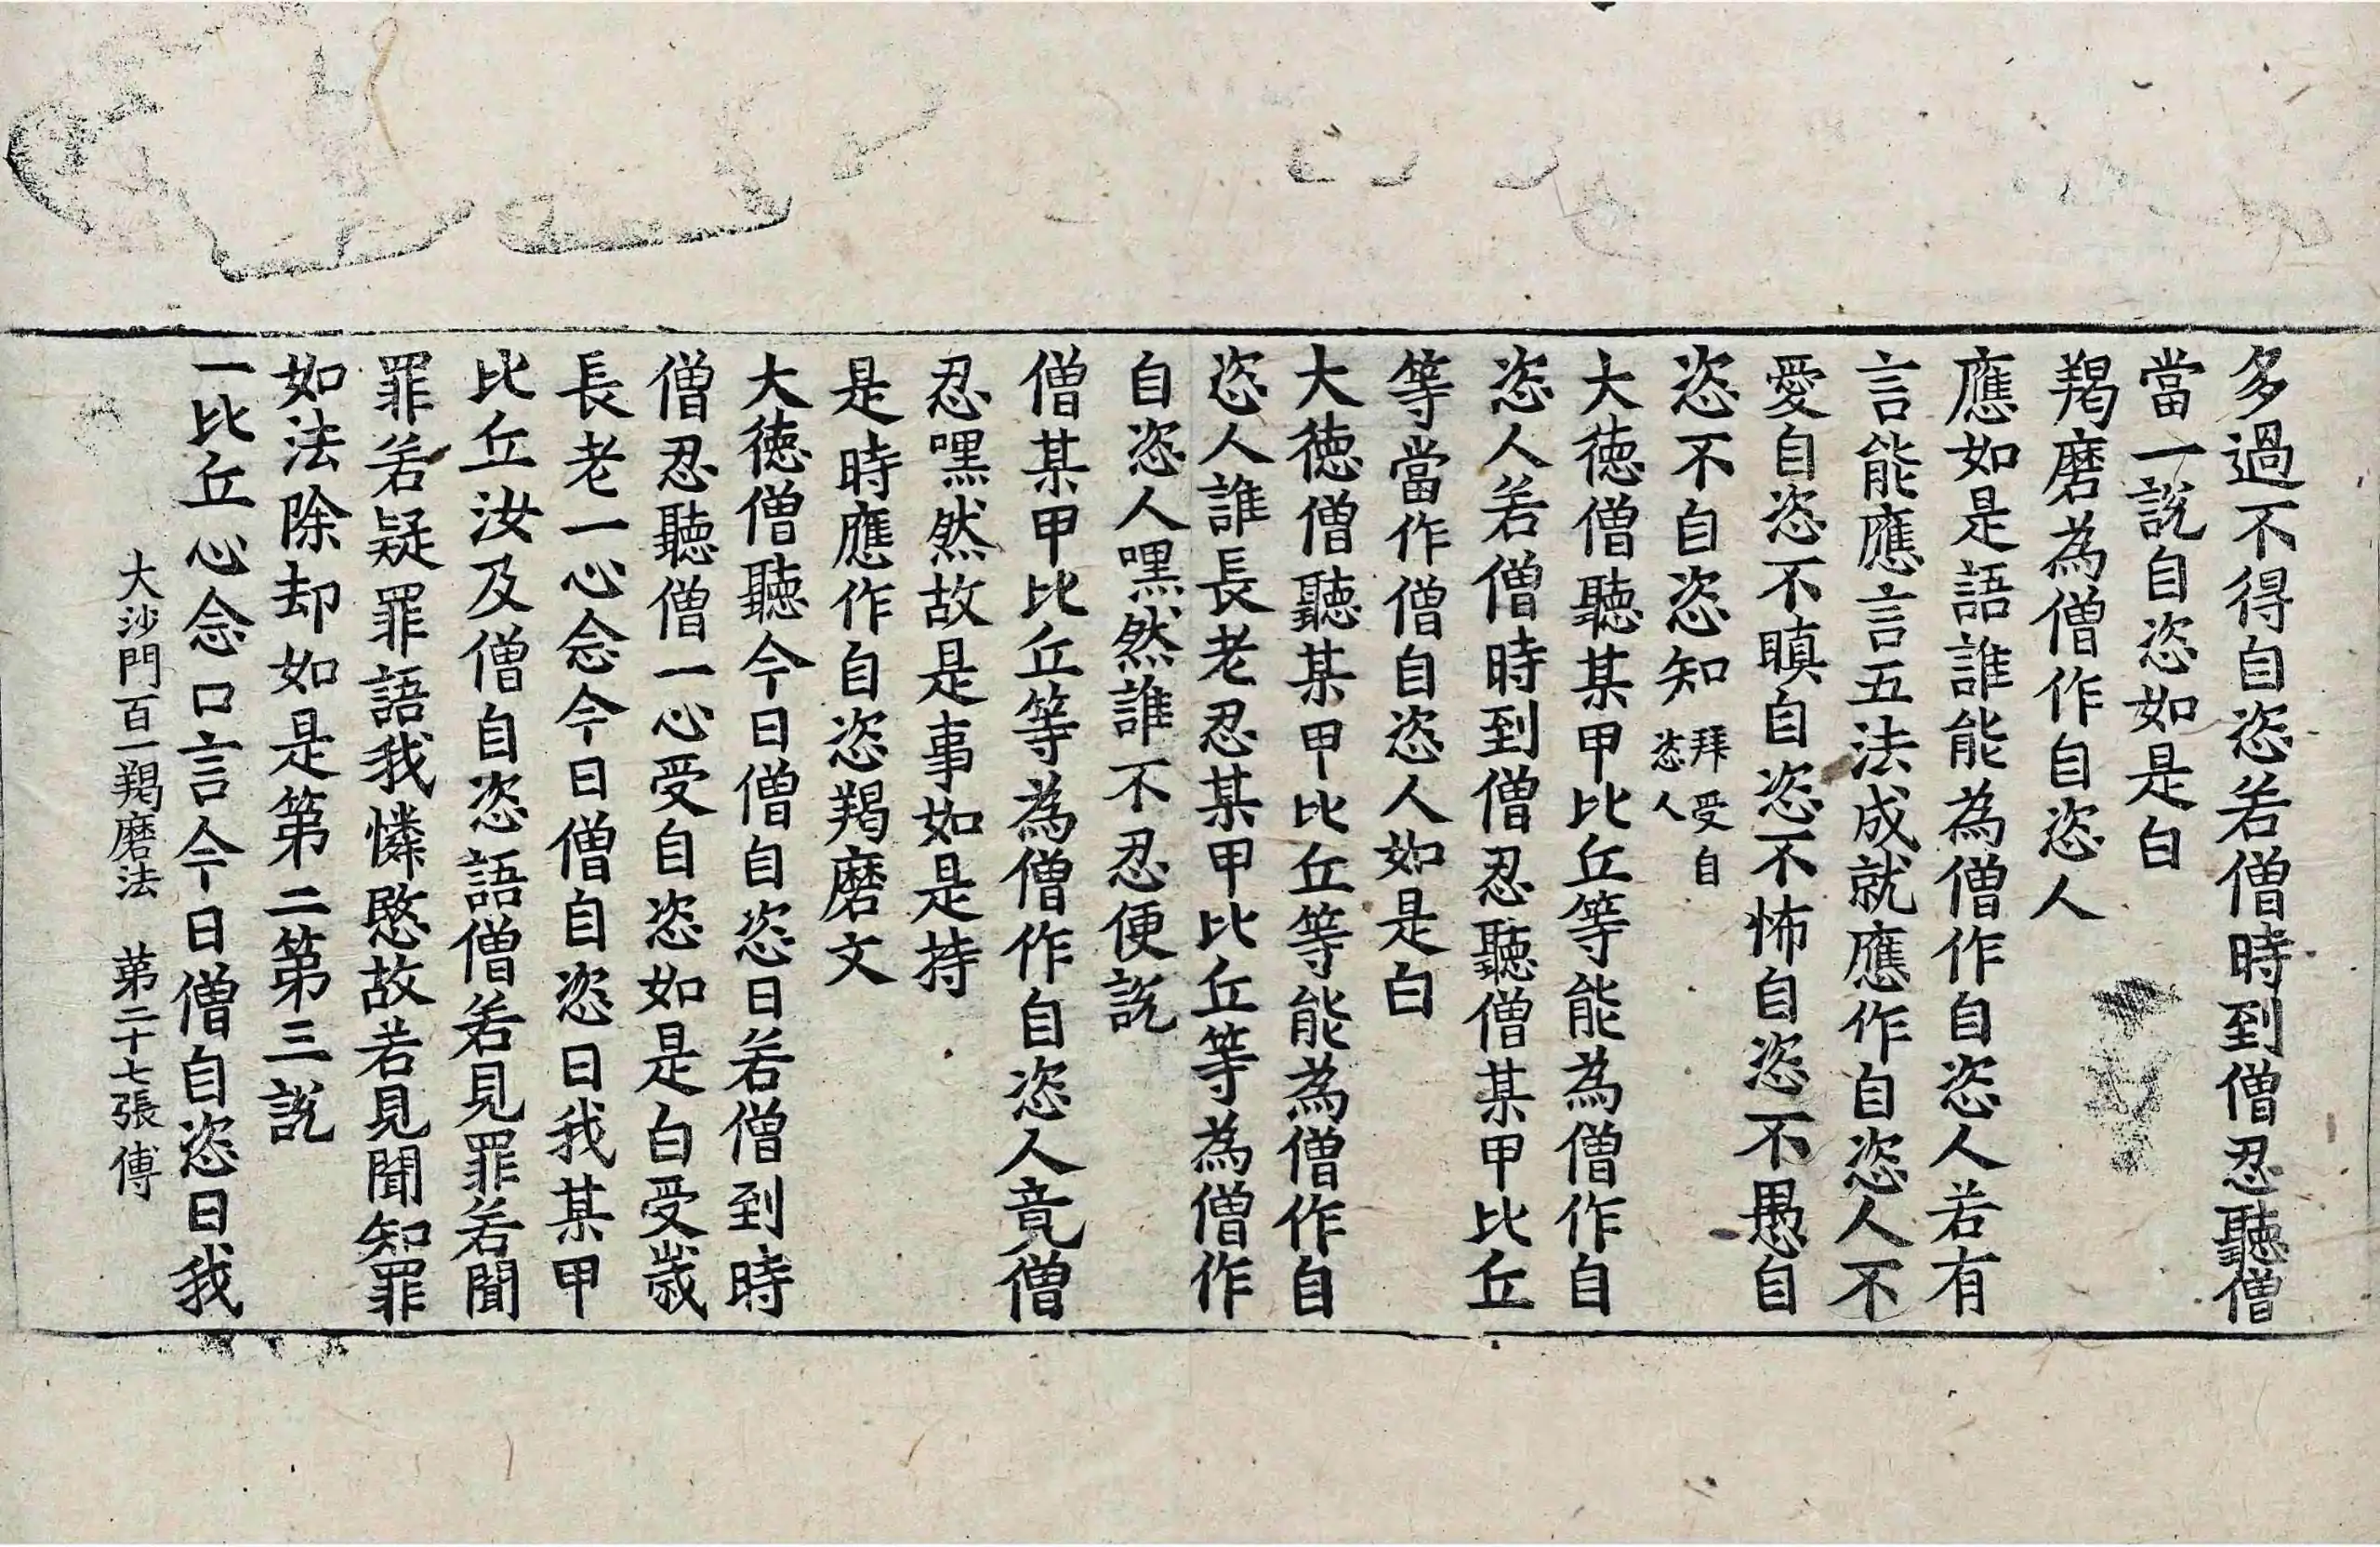 多過不得自恣若僧時到僧忍聽僧
當一說自恣如是白
羯磨為僧作自恣人
應如是語誰能為僧作自恣人若有
言能應言五法成就應作自恣人不
愛自恣不瞋自恣不怖自恣不愚自
恣不自恣知拜受自恣人
大德僧聽某甲比丘等能為僧作自
恣人若僧時到僧忍聽僧某甲比丘
等當作僧自恣人如是白
大德僧聽某甲比丘等能為僧作自
恣人誰長老忍某甲比丘等為僧作
自恣人嘿然誰不忍便說
僧某甲比丘等為僧作自恣人竟僧
忍嘿然故是事如是持
是時應作自恣羯磨文
大德僧聽今日僧自恣日若僧到時
僧忍聽僧一心受自恣如是白受歲
長老一心念今日僧自恣日我某甲
比丘汝及僧自恣語僧若見罪若聞
罪若疑罪語我憐愍故若見聞知罪
如法除却如是第二第三說
一比丘心念口言今日僧自恣日我
大沙門百一羯磨法 第二十七張 傅